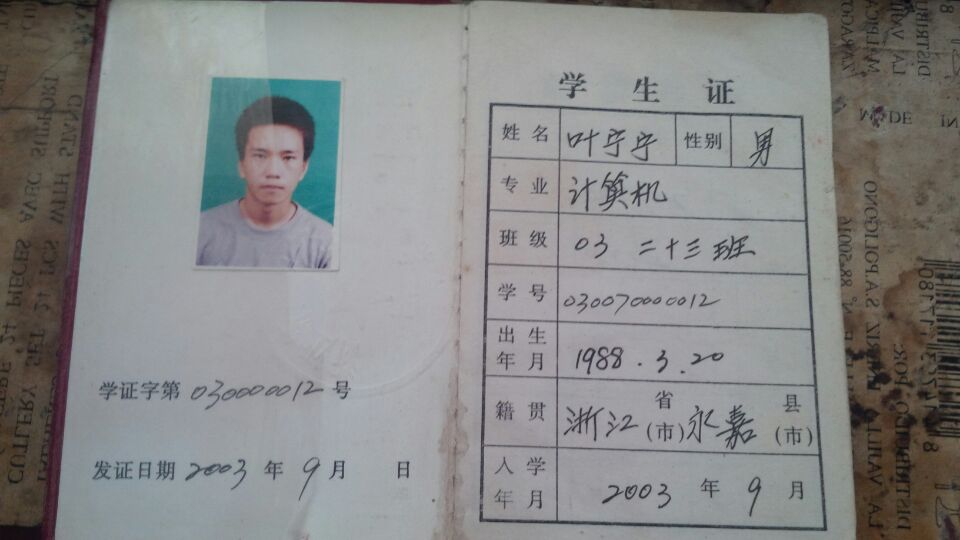 学证字第 030000012 号
发证日期 2003 年 9 月 日
学生证
姓名 叶宁宁 性别 男
专业 计算机
班级 03 二十三班
学号 030070000012
出生年月 1988.3.20
籍贯 浙江 省(市) 永嘉 县(市)
入学年月 2003 年 9 月
CUTLERY SET 24 PCS WITH STAND
PIECES AVEC SUPPORT
MADE IN